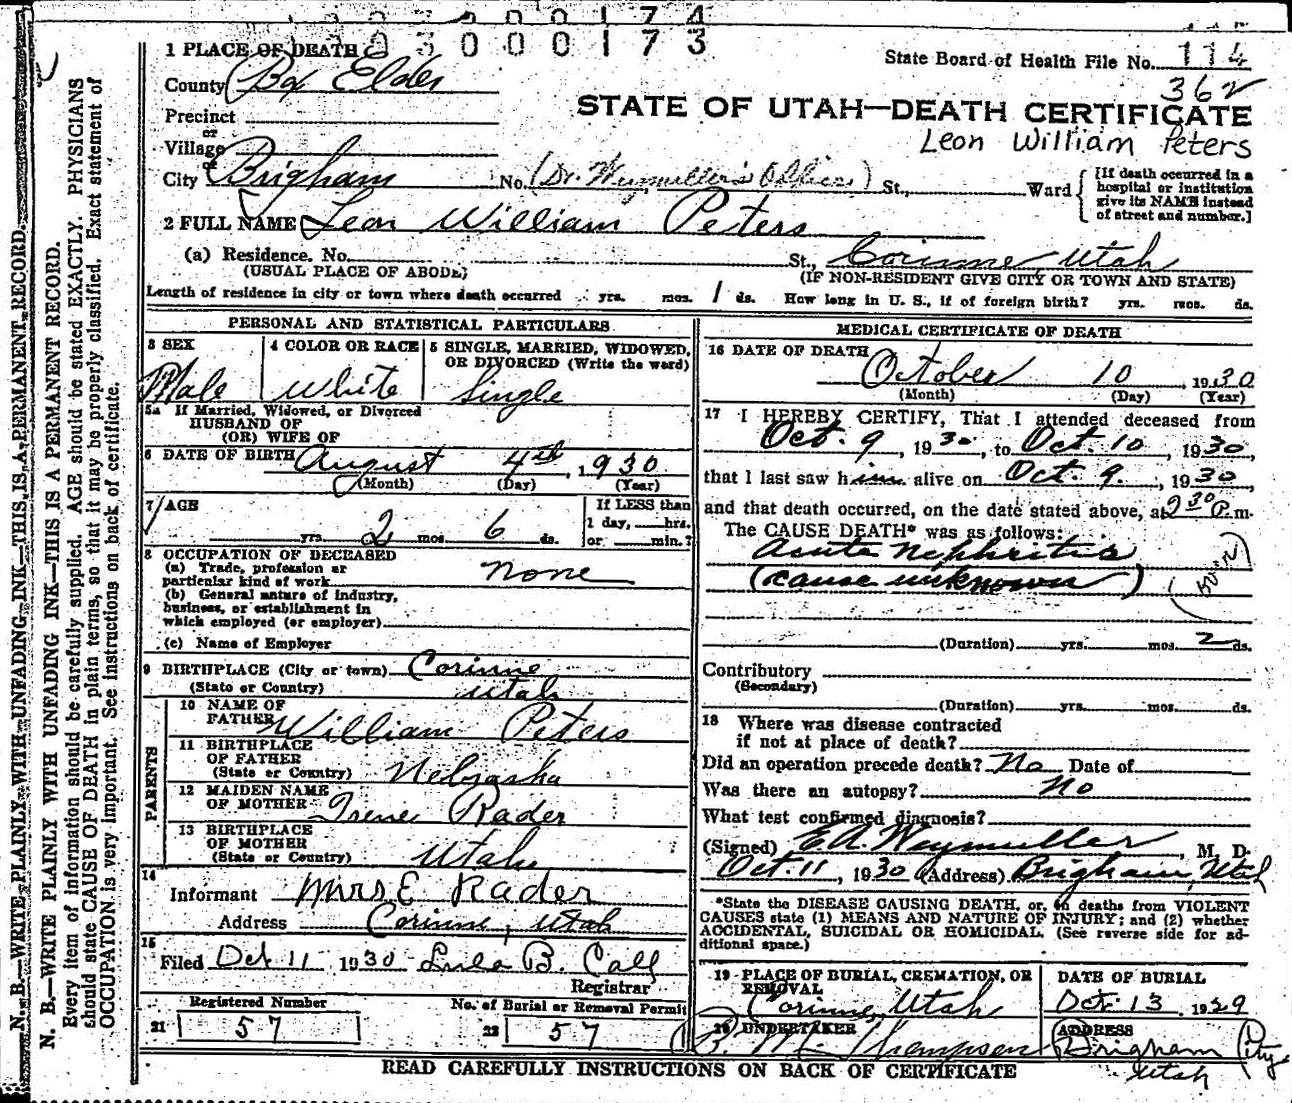 000174
3000173
1 PLACE OF DEATH
State Board of Health File No. 114
County Box Elder
362
STATE OF UTAH—DEATH CERTIFICATE
Precinct
or
Leon William Peters
Village
or
City Brigham No. (Dr. Weymuller's Office) St., Ward
[If death occurred in a
hospital or institution
give its NAME instead
of street and number.]
2 FULL NAME Leon William Peters
(a) Residence. No. St., Corinne, Utah
(USUAL PLACE OF ABODE) (IF NON-RESIDENT GIVE CITY OR TOWN AND STATE)
Length of residence in city or town where death occurred yrs. mos. 1 ds. How long in U. S., if of foreign birth? yrs. mos. ds.
PERSONAL AND STATISTICAL PARTICULARS
3 SEX 4 COLOR OR RACE 5 SINGLE, MARRIED, WIDOWED,
OR DIVORCED (Write the word)
Male White Single
5a If Married, Widowed, or Divorced
HUSBAND OF
(OR) WIFE OF
6 DATE OF BIRTH August 4th, 1930
(Month) (Day) (Year)
7 AGE If LESS than
1 day, hrs.
yrs. 2 mos. 6 ds. or min.?
8 OCCUPATION OF DECEASED
(a) Trade, profession or
particular kind of work none
(b) General nature of industry,
business, or establishment in
which employed (or employer)
(c) Name of Employer
9 BIRTHPLACE (City or town) Corinne
(State or Country) Utah
PARENTS
10 NAME OF
FATHER William Peters
11 BIRTHPLACE
OF FATHER
(State or Country) Nebraska
12 MAIDEN NAME
OF MOTHER Irene Rader
13 BIRTHPLACE
OF MOTHER
(State or Country) Utah
14
Informant Mrs E Rader
Address Corinne, Utah
15
Filed Oct 11 1930 Lula B. Call
Registrar
Registered Number No. of Burial or Removal Permit
21 57 22 57
MEDICAL CERTIFICATE OF DEATH
16 DATE OF DEATH
October 10, 1930
(Month) (Day) (Year)
17 I HEREBY CERTIFY, That I attended deceased from
Oct. 9, 1930, to Oct. 10, 1930,
that I last saw him alive on Oct. 9., 1930,
and that death occurred, on the date stated above, at 2 30 P.m.
The CAUSE DEATH* was as follows:
Acute Nephritis
(cause unknown)
(Duration) yrs. mos. 2 ds.
Contributory
(Secondary)
(Duration) yrs. mos. ds.
18 Where was disease contracted
if not at place of death?
Did an operation precede death? No Date of
Was there an autopsy? No
What test confirmed diagnosis?
(Signed) E.A. Weymuller, M. D.
Oct. 11, 1930 (Address) Brigham, Utah
*State the DISEASE CAUSING DEATH, or, in deaths from VIOLENT
CAUSES state (1) MEANS AND NATURE OF INJURY; and (2) whether
ACCIDENTAL, SUICIDAL OR HOMICIDAL. (See reverse side for ad-
ditional space.)
19 PLACE OF BURIAL, CREMATION, OR
REMOVAL
DATE OF BURIAL
Corinne, Utah Oct. 13, 1929
20 UNDERTAKER ADDRESS
B. M. Thompson Brigham City
Utah
READ CAREFULLY INSTRUCTIONS ON BACK OF CERTIFICATE
N. B.—WRITE PLAINLY WITH UNFADING INK—THIS IS A PERMANENT RECORD.
N. B.—WRITE PLAINLY WITH UNFADING INK—THIS IS A PERMANENT RECORD.
Every item of information should be carefully supplied. AGE should be stated EXACTLY. PHYSICIANS
should state CAUSE OF DEATH in plain terms, so that it may be properly classified. Exact statement of
OCCUPATION is very important. See instructions on back of certificate.